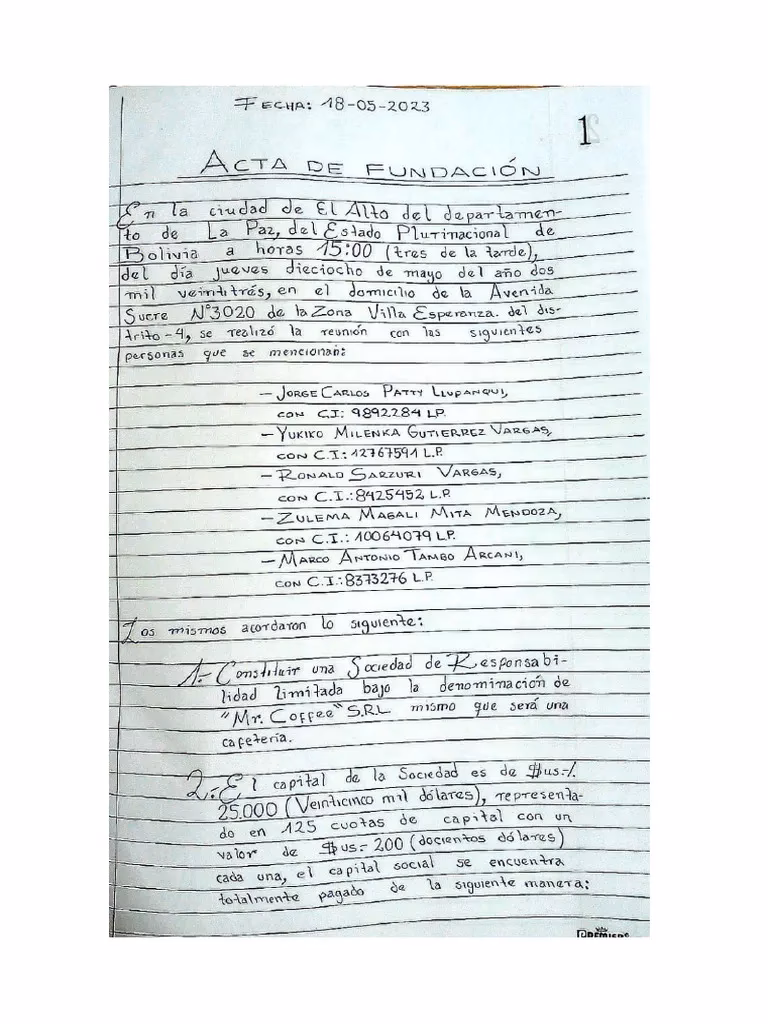 FECHA: 18-05-2023
1
ACTA DE FUNDACIÓN
En la ciudad de El Alto del departamen-
to de La Paz, del Estado Plurinacional de
Bolivia a horas 15:00 (tres de la tarde),
del día jueves dieciocho de mayo del año dos
mil veintitrés, en el domicilio de la Avenida
Sucre N°3020 de la Zona Villa Esperanza. del dis-
trito-4, se realizó la reunión con las siguientes
personas que se mencionan:
- JORGE CARLOS PATTY LLUPANQUI,
CON C.I: 9892284 LP.
- YUKIKO MILENKA GUTIERREZ VARGAS,
CON C.I.: 12767591 L.P.
- RONALD SARZURI VARGAS,
CON C.I.: 8425452 L.P.
- ZULEMA MAGALI MITA MENDOZA,
CON C.I.: 10064079 LP.
- MARCO ANTONIO TAMBO ARCANI,
CON C.I.: 8373276 L.P.
Los mismos acordaron lo siguiente:
1.- Constituir una Sociedad de Responsabi-
lidad limitada bajo la denominación de
"Mr. Coffee" S.R.L mismo que será una
cafetería.
2.- El capital de la Sociedad es de $us.-/.
25.000 (Veinticinco mil dólares), representa-
do en 125 cuotas de capital con un
valor de $us.- 200 (docientos dólares)
cada una, el capital social se encuentra
totalmente pagado de la siguiente manera: